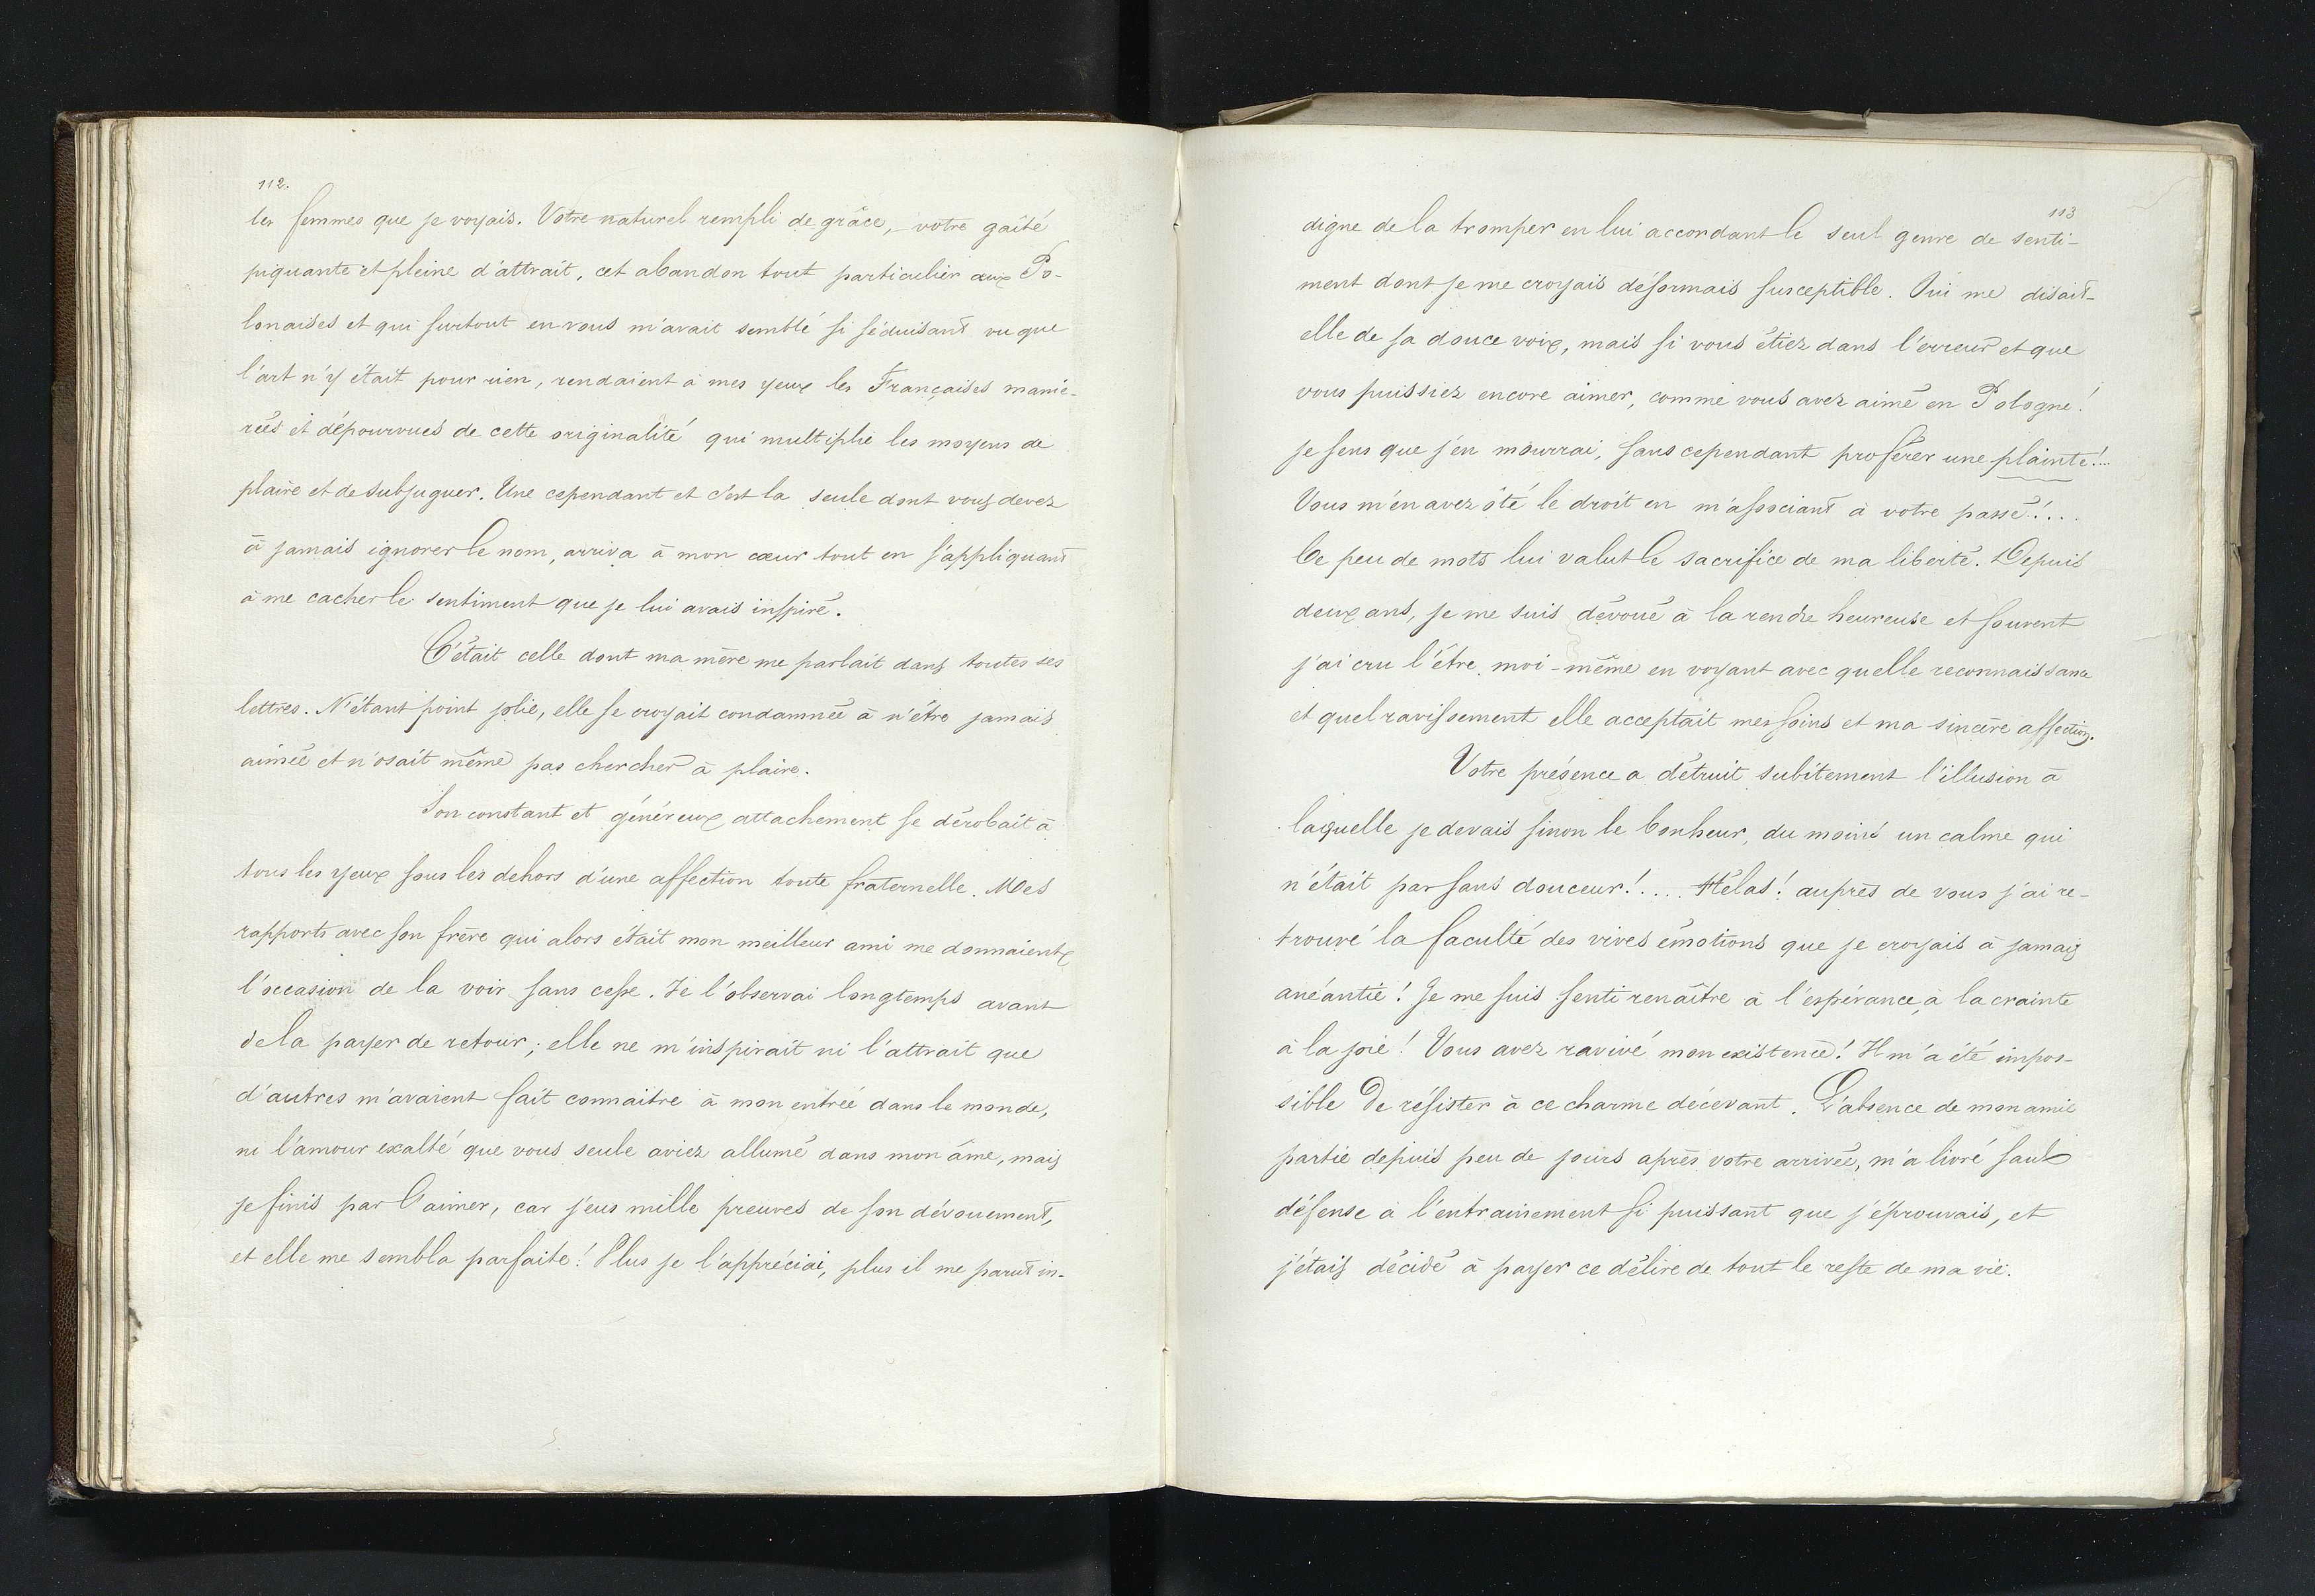 112.
les femmes que je voyais. Votre naturel rempli de grâce, votre gaîté
piquante et pleine d'attrait, cet abandon tout particulier aux Po-
lonaises et qui surtout en vous m'avait semblé si séduisant vu que
l'art n'y était pour rien, rendaient à mes yeux les Françaises manié-
rées et dépourvues de cette originalité qui multiplie les moyens de
plaire et de subjuguer. Une cependant et c'est la seule dont vous devez
à jamais ignorer le nom, arriva à mon cœur tout en s'appliquant
à me cacher le sentiment que je lui avais inspiré.
C'était celle dont ma mère me parlait dans toutes ses
lettres. N'étant point jolie, elle se croyait condamnée à n'être jamais
aimée et n'osait même pas chercher à plaire.
Son constant et généreux attachement se dérobait à
tous les yeux sous les dehors d'une affection toute fraternelle. Mes
rapports avec son frère qui alors était mon meilleur ami me donnaient
l'occasion de la voir sans cesse. Je l'observai longtemps avant
de la payer de retour; elle ne m'inspirait ni l'attrait que
d'autres m'avaient fait connaitre à mon entrée dans le monde,
ni l'amour exalté que vous seule aviez allumé dans mon âme, mais
je finis par l'aimer, car j'eus mille preuves de son dévouement,
et elle me sembla parfaite! Plus je l'appréciai, plus il me parut in-
113
digne de la tromper en lui accordant le seul genre de senti-
ment dont je me croyais désormais susceptible. Oui me disait-
elle de sa douce voix, mais si vous étiez dans l'erreur et que
vous puissiez encore aimer, comme vous avez aimé en Pologne!
je sens que j'en mourrai, sans cependant proférer une plainte!...
Vous m'en avez ôté le droit en m'associant à votre passé!...
Ce peu de mots lui valut le sacrifice de ma liberté. Depuis
deux ans, je me suis dévoué à la rendre heureuse et souvent
j'ai cru l'être moi-même en voyant avec quelle reconnaissance
et quel ravissement elle acceptait mes soins et ma sincère affection.
Votre présence a détruit subitement l'illusion à
laquelle je devais sinon le bonheur, du moins un calme qui
n'était pas sans douceur!.... Hélas! auprès de vous j'ai re-
trouvé la faculté des vives émotions que je croyais à jamais
anéantie! Je me suis senti renaître à l'espérance, à la crainte
à la joie! Vous avez ravivé mon existence! Il m'a été impos-
sible de résister à ce charme décevant. L'absence de mon amie
partie depuis peu de jours après votre arrivée, m'a livré sans
défense à l'entrainement si puissant que j'éprouvais, et
j'étais décidé à payer ce délire de tout le reste de ma vie.